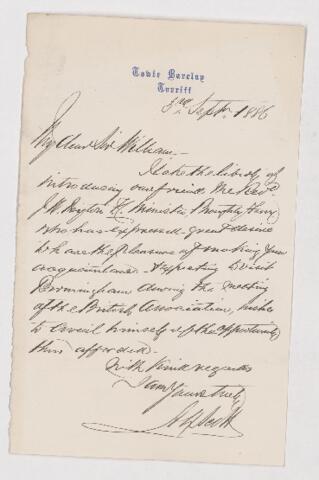 Towie Barclay
Turriff
3rd Septr. 1886
My dear Sir William,—
I take the liberty of
introducing our friend the Revd
J. W. Minister Broughty Ferry
who has expressed great desire
to have the pleasure of making your
acquaintance. Expecting to visit
Birmingham during the meeting
of the British Association, wishes
to avail himself of the opportunity
thus afforded.
With kind regards
I am Yours truly
Scott